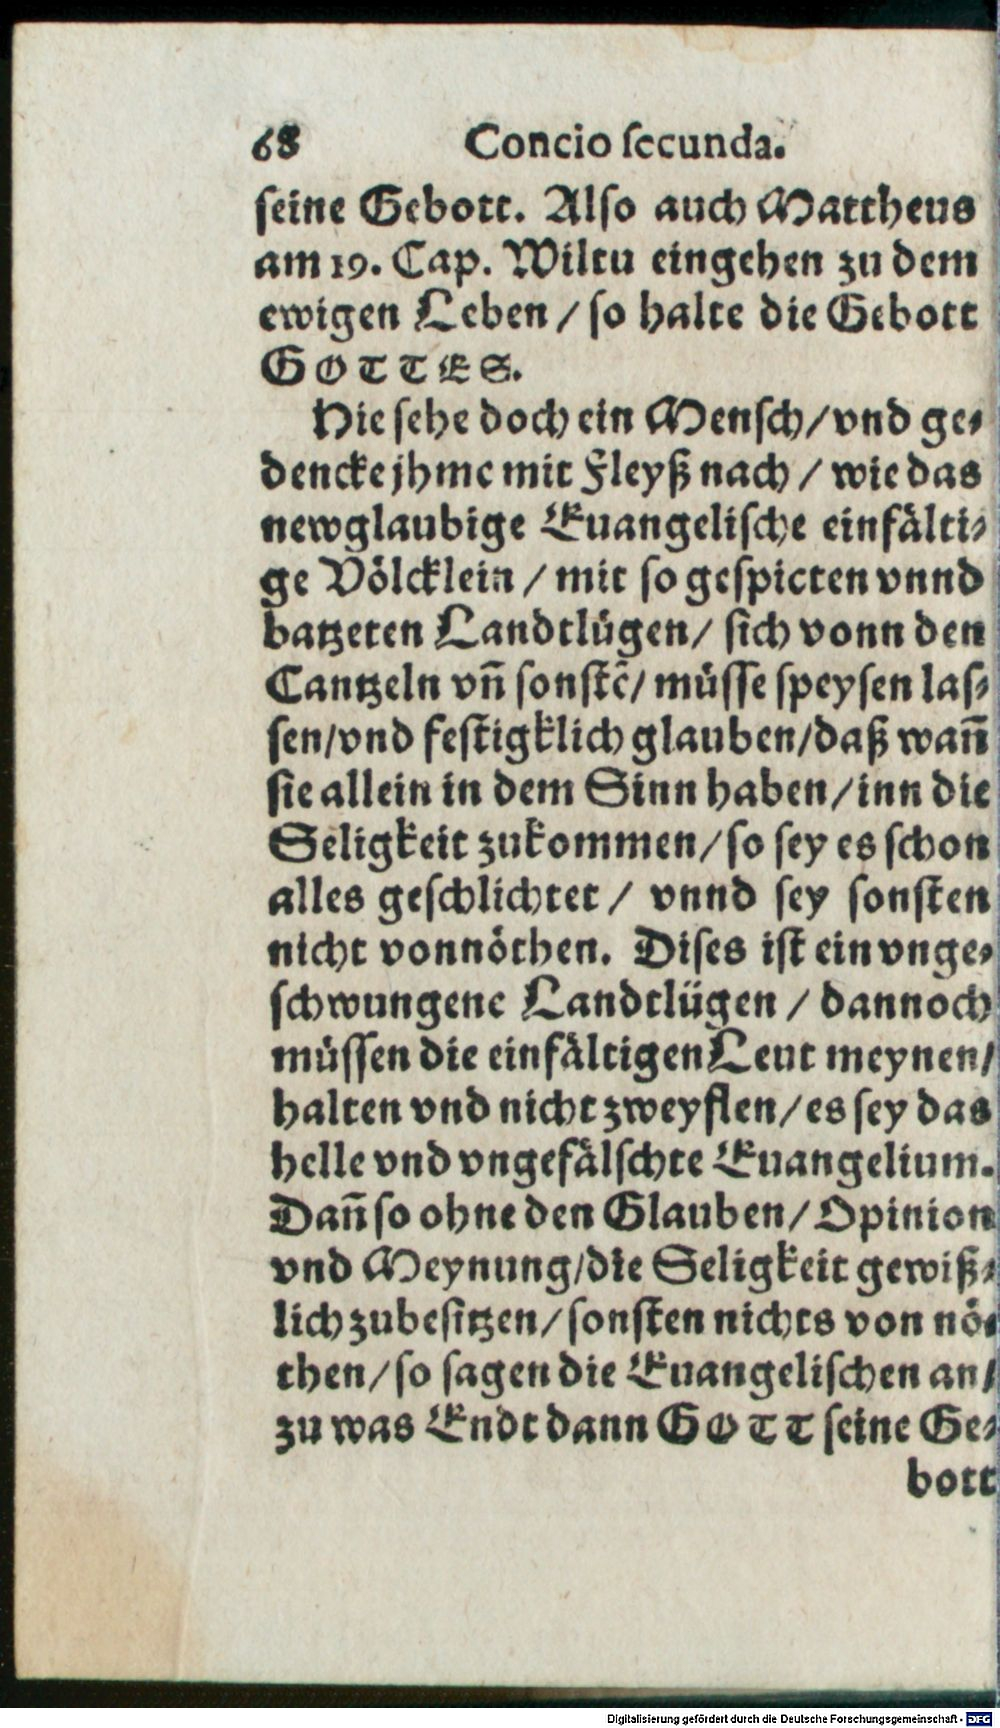 68 Concio secunda.
seine Gebott. Also auch Mattheus
am 19. Cap. Wiltu eingehen zu dem
ewigen Leben / so halte die Gebott
GOTTES.
Hie sehe doch ein Mensch / vnd ge-
dencke jhme mit Fleyß nach / wie das
newglaubige Euangelische einfälti-
ge Völcklein / mit so gespicten vnnd
batzeten Landtlügen / sich vonn den
Cantzeln vñ sonstẽ / müsse speysen las-
sen / vnd festigklich glauben / daß wañ
sie allein in dem Sinn haben / inn die
Seligkeit zukommen / so sey es schon
alles geschlichtet / vnnd sey sonsten
nicht vonnöthen. Dises ist ein vnge-
schwungene Landtlügen / dannoch
müssen die einfältigen Leut meynen /
halten vnd nicht zweyflen / es sey das
helle vnd vngefälschte Euangelium.
Dañ so ohne den Glauben / Opinion
vnd Meynung / die Seligkeit gewiß-
lich zubesitzen / sonsten nichts von nö-
then / so sagen die Euangelischen an /
zu was Endt dann GOTT seine Ge-
bott
Digitalisierung gefördert durch die Deutsche Forschungsgemeinschaft - DFG